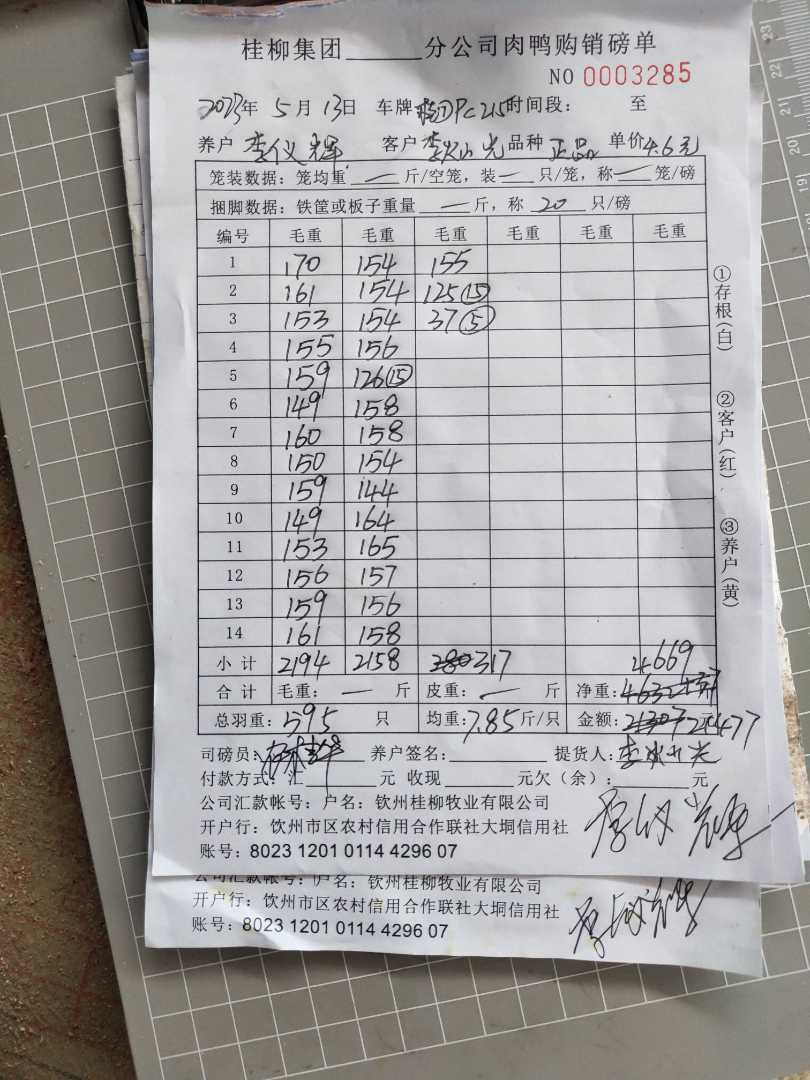 桂柳集团______分公司肉鸭购销磅单
NO 0003285
2023年 5月 13日 车牌 PC215 时间段： 至
养户 李仪辉 客户 李火山光 品种 正品 单价 4.6元
笼装数据：笼均重 — 斤/空笼，装 — 只/笼，称 — 笼/磅
捆脚数据：铁筐或板子重量 — 斤，称 20 只/磅
编号 毛重 毛重 毛重 毛重 毛重 毛重
1 170 154 155
2 161 154 125⑮
3 153 154 37⑤
4 155 156
5 159 126⑮
6 149 158
7 160 158
8 150 154
9 159 144
10 149 164
11 153 165
12 156 157
13 159 156
14 161 158
小计 2194 2158 380 317 4669
合计 毛重： — 斤 皮重： — 斤 净重：4632
总羽重：595 只 均重：7.85斤/只 金额：21307 21477
司磅员： 养户签名： 提货人：李火山光
付款方式：汇______元 收现______元欠（余）：______元
公司汇款帐号：户名：钦州桂柳牧业有限公司
开户行：钦州市区农村信用合作联社大垌信用社
账号：8023 1201 0114 4296 07
①存根（白）
②客户（红）
③养户（黄）
公司汇款帐号：户名：钦州桂柳牧业有限公司
开户行：钦州市区农村信用合作联社大垌信用社
账号：8023 1201 0114 4296 07
23
22
21
20
19